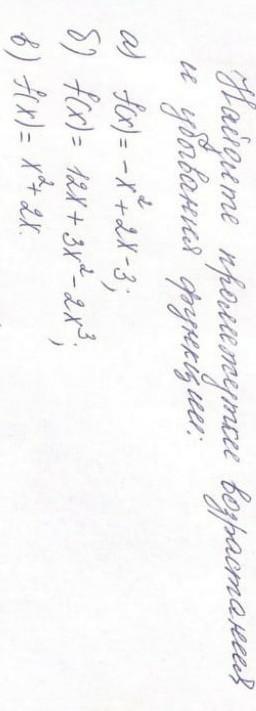 Найдите промежутки возрастания
и убывания функции:
а) f(x) = -x² + 2x - 3;
б) f(x) = 12x + 3x² - 2x³;
в) f(x) = x² + 2x.